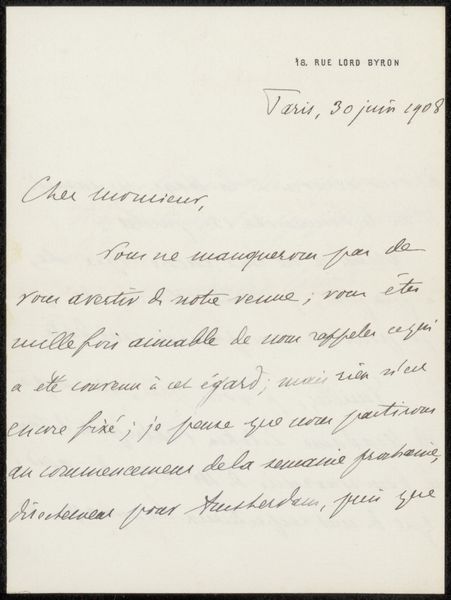 18. RUE LORD BYRON
Paris, 30 juin 1908
Cher monsieur,
nous ne manquerons pas de
vous avertir de notre venue; vous êtes
mille fois aimable de nous rappeler ce qui
a été convenu à cet égard; mais rien n'est
encore fixé; je pense que nous partirons
au commencement de la semaine prochaine,
directement pour Amsterdam, puis que